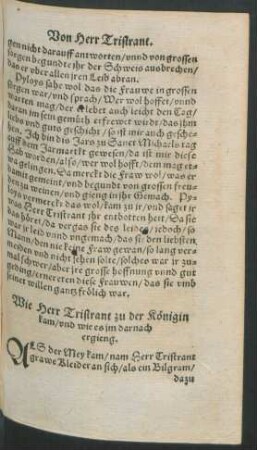 Von Herr Tristrant.
gen nicht darauff antworten / vnnd von grossen
sorgen begundte jhr der Schweis ausbrechen /
das er vber allen jren Leib abran.
Pyloys sahe wol das die Frauwe in grossen
sorgen war / vnd sprach / Wer wol hoffet / vnnd
warten mag / der erlebet auch leicht den Tag /
daran im sein gemüth erfrewet wirdt / das ihm
liebs vnd guts geschicht / so ist mir auch gesche-
hen, Ich bin diß Jars zu Sanct Michaels tag
auff dem Jarmarckt gewesen / da ist mir diese
Sach worden / also / wer wol hofft / dem mag et-
wa gelingen. Da merckt die Fraw wol / was er
damit gemeint / vnd begundt von grossen freu-
den zu weinen / vnd gieng in jhr Gemach. Py-
loys vermerckt das wol / kam zu jr / vnd saget jr
was Herr Tristrant jhr entbotten hett / Da sie
das hörte / da vergas sie deß leides / jedoch / so
war jr leid vnnd vngemach / das sie den liebsten
Mann / den nie keine Fraw gewan / so lang ver-
meiden vnd nicht sehen solte / solches war jr zu-
mal schwer / aber jre grosse hoffnung vnnd gut
geding / ernereten diese Frauwen / das sie vmb
seinet willen gantz frölich war.
Wie Herr Tristrant zu der Königin
kam / vnd wie es im darnach
ergieng.
ALS der Mey kam / nam Herr Tristrant
grawe Kleider an sich / als ein Bilgram /
dazu